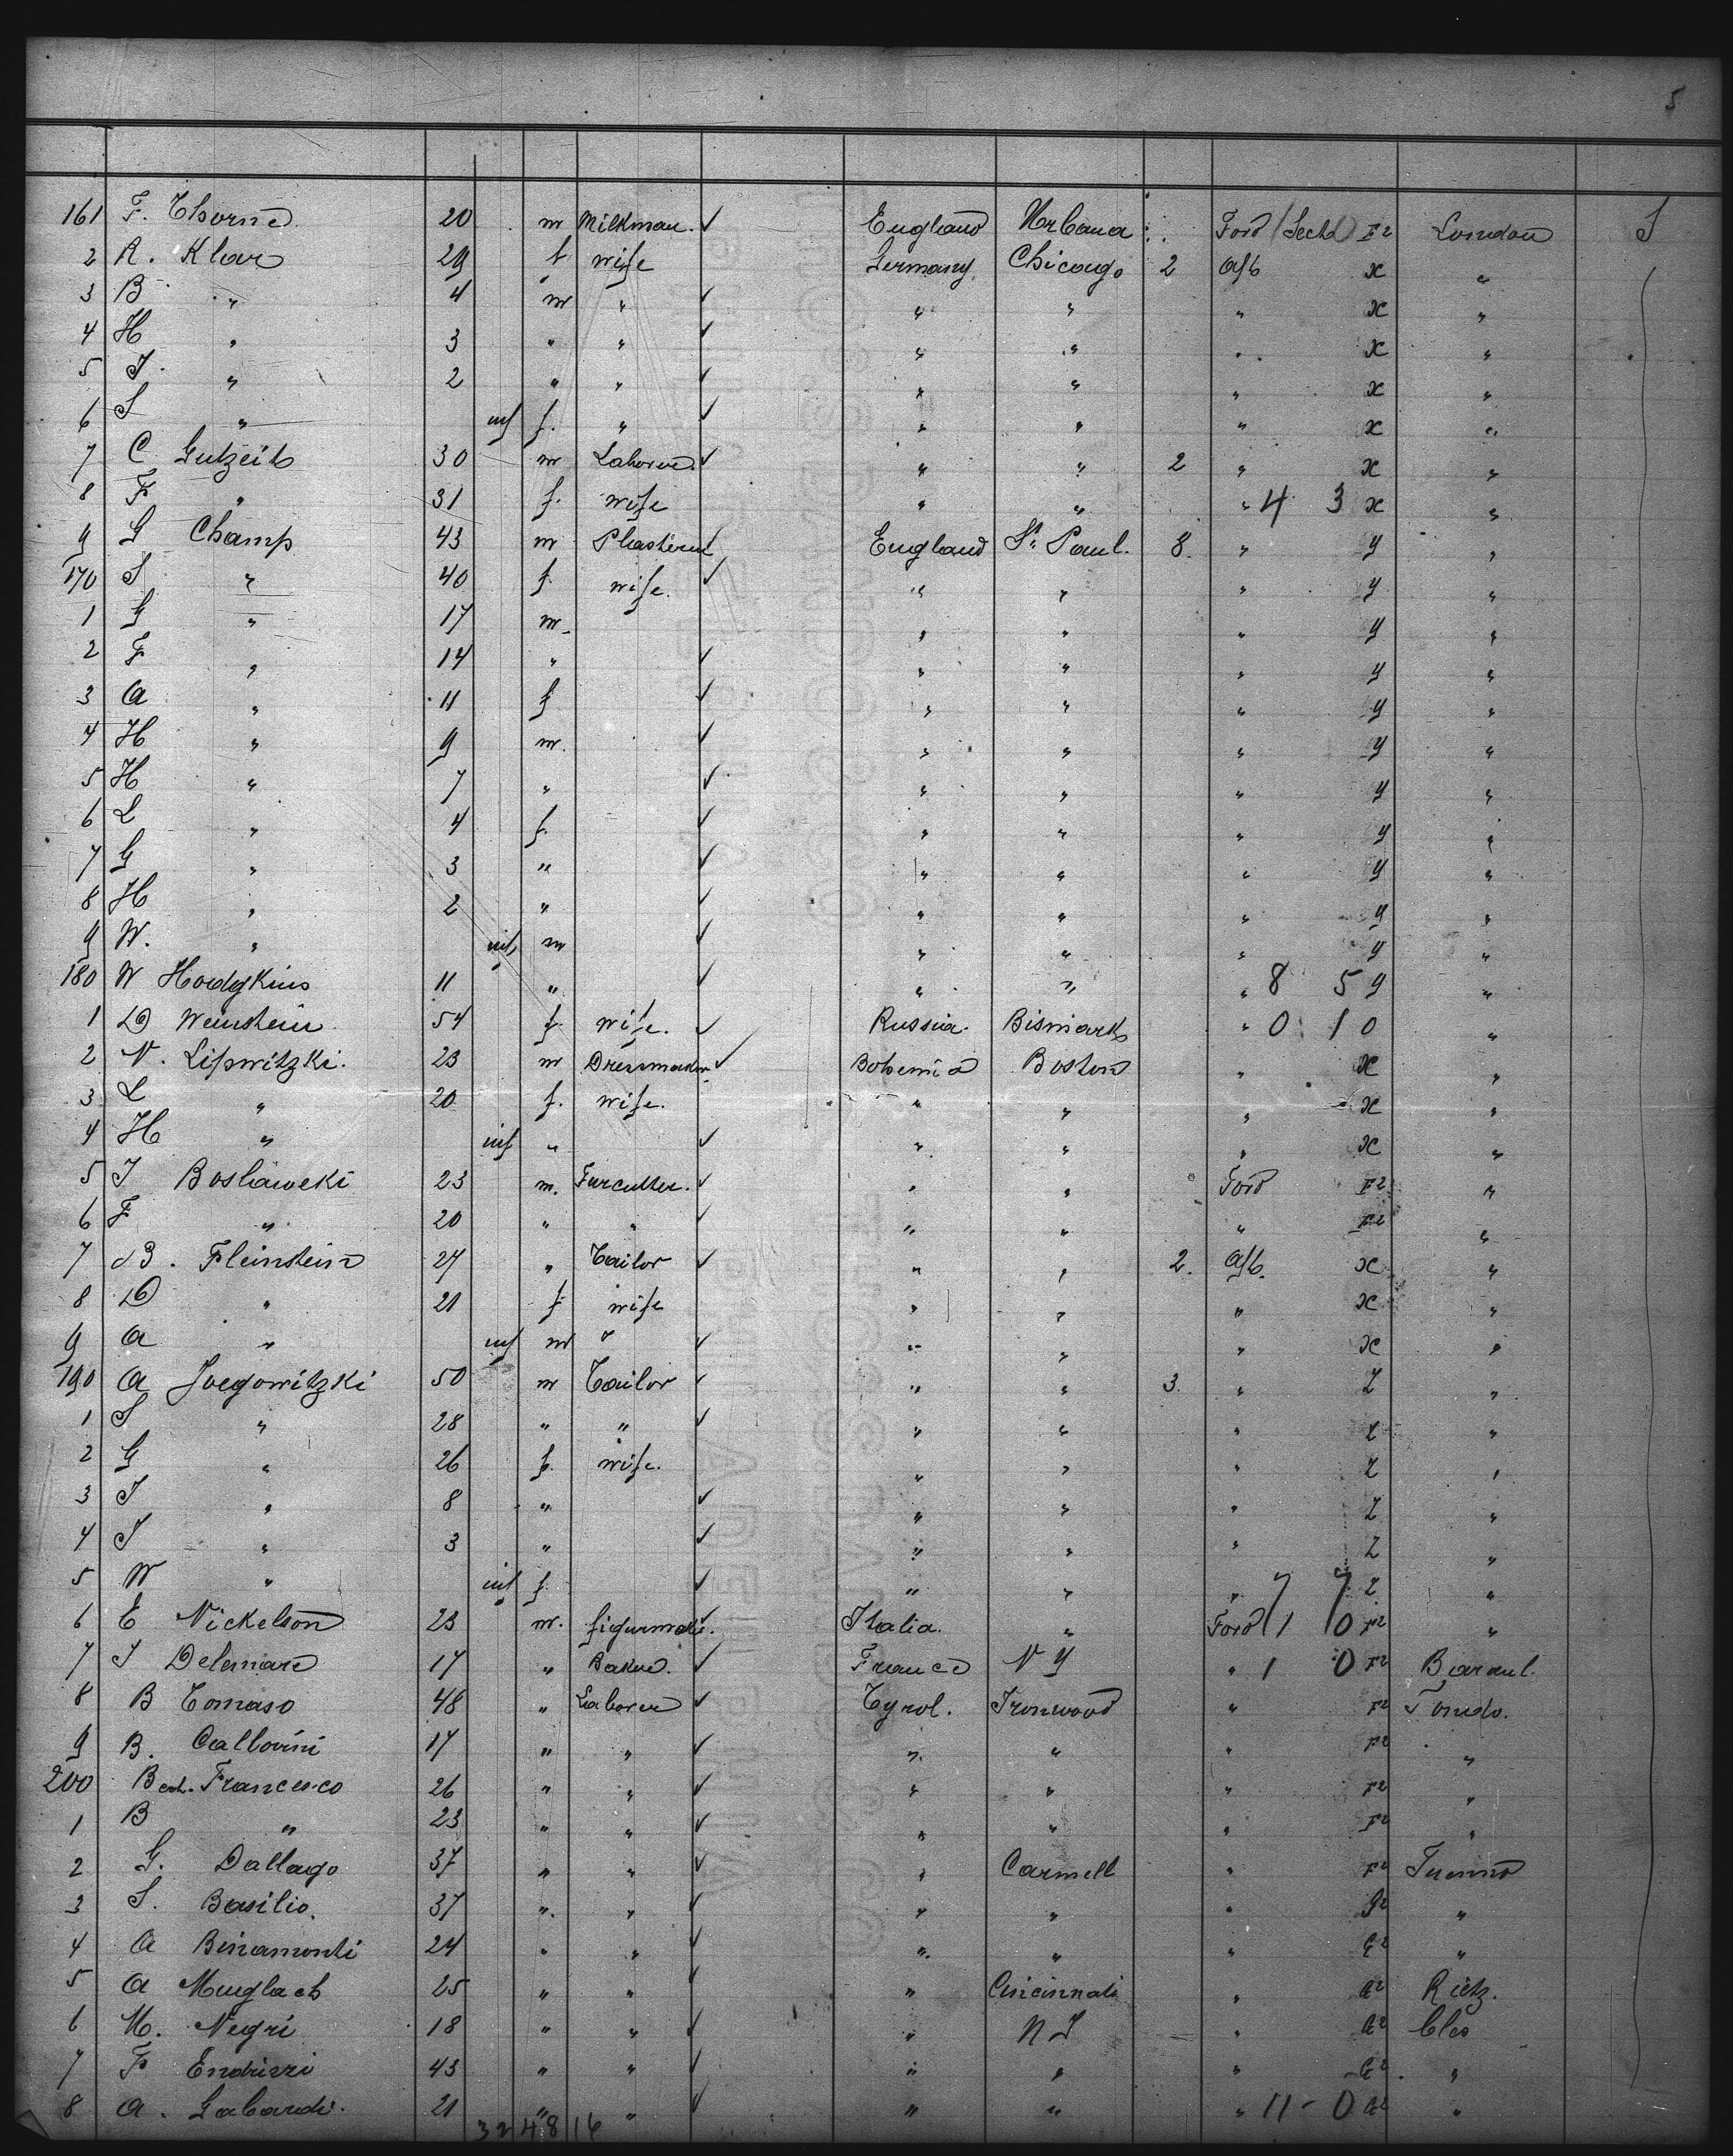 5
161 F. Thorne 20 m Milkman. ✓ England Urbana Ford (Sechd) F2 London S
2 R. Klar 29 f wife Germany Chicago 2 Aft x "
3 B " 4 m " ✓ " " " x "
4 H " 3 " " ✓ " " " x "
5 J. " 2 " " ✓ " " " x "
6 S " inf f. " ✓ " " " x "
7 C Gutzeit 30 m Laborer. ✓ " " 2 " x "
8 F " 31 f. wife " " " 4 3 x "
9 G Champ 43 m Plasterer ✓ England St. Paul. 8. " y "
170 S " 40 f wife. ✓ " " " y "
1 G " 17 m. " " " y "
2 F " 14 " ✓ " " " y "
3 A " 11 f ✓ " " " y "
4 H " 9 m. ✓ " " " y "
5 H " 7 " ✓ " " " y "
6 L " 4 f. ✓ " " " y "
7 G " 3 " ✓ " " " y "
8 H " 2 " ✓ " " " y "
9 W. " inf m ✓ " " " y "
180 W Hodgkins 11 " ✓ " " " 8 5 y "
1 D Weinstein 54 f wife. ✓ Russia. Bismark " 0 1 0 "
2 N. Lipwitzki. 23 m Dressmaker ✓ Bohemia Boston " x "
3 L " 20 f. wife. " " " x "
4 H " inf " ✓ " " " x "
5 J Boslaweki 23 m. Furcutter. ✓ " " Ford F2 "
6 F " 20 " " ✓ " " " F2 "
7 B. Fleinstein 27 " Tailor ✓ " " 2. Aft. x "
8 D " 21 f wife " " " x "
9 A " inf m " ✓ " " " x "
190 A Joegowitzki 50 m Tailor ✓ " " 3. " Z "
1 S " 28 " " ✓ " " " Z "
2 G " 26 f. wife. " " " Z "
3 J " 8 " ✓ " " " Z "
4 J " 3 " ✓ " " " Z "
5 W " inf f. ✓ " " " 7 7 Z "
6 E Nickelson 23 m. figurmaker. ✓ Italia. " Ford 1 0 F2 "
7 J Delemare 17 " Baker. ✓ France N Y " 1 0 F2
8 B Tomaso 48 " Laborer ✓ Tyrol. Ironwood " F2 Fondo.
9 B. Callovini 17 " " ✓ " " " F2 "
200 Bert. Francesco 26 " " ✓ " " " F2 "
1 B " 23 " " ✓ " " " F2 "
2 G. Dallago 37 " " ✓ " Carmell " F2 Tuenno
3 S. Basilio. 37 " " ✓ " " " G2 "
4 A Binamonti 24 " " ✓ " " " G2 "
5 A Muglach 25 " " ✓ " Cincinnati " G2 Rietz.
6 M. Negri 18 " " ✓ " N J " G2 Cles
7 F Endrizzi 43 " " ✓ " " " G2 "
8 A. Gabardi. 21 " " ✓ " " " 11 - 0 G2 "
32 48 16